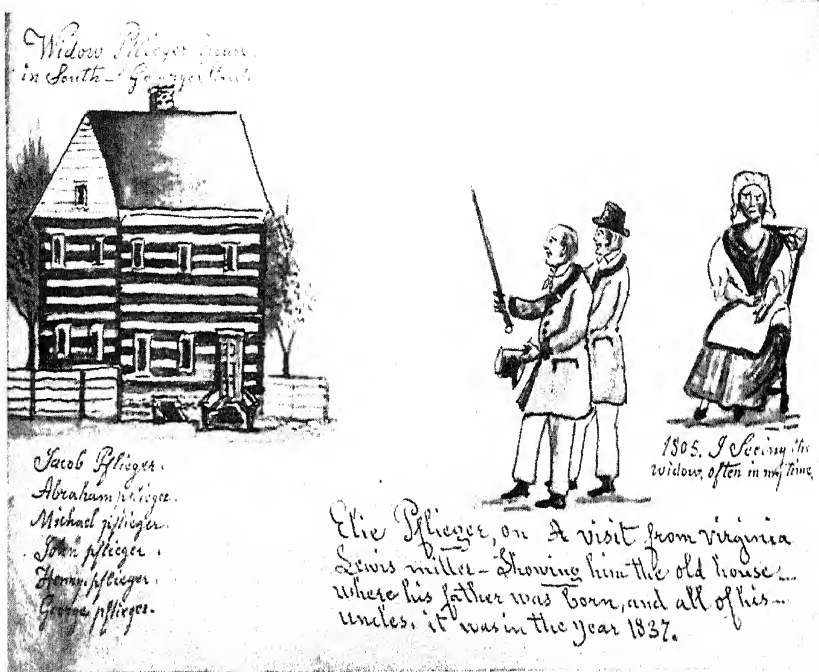 Widow Pflieger house.
in South - George Street
Jacob Pflieger.
Abraham pflieger.
Michael pflieger.
John pflieger.
Henry pflieger.
George pflieger.
1805. I Seeing the
widow, often in my time,
Elie Pflieger, on A visit from Virginia
Lewis miller - Showing him the old house
where his father was born, and all of his
uncles. it was in the year 1837.